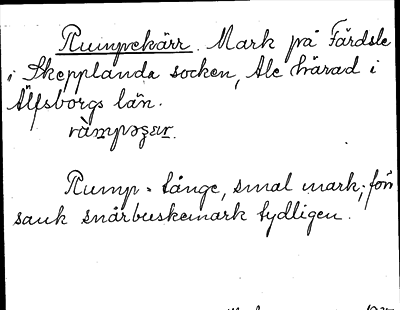 Rumpekärr. Mark på Färdsle
i Skepplanda socken, Ale härad i
Älfsborgs län.
Rump = långe, smal mark; för
sank snårbuskemark tydligen.